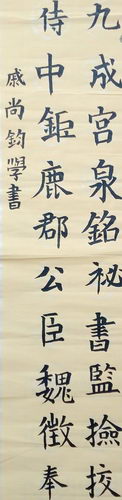 九成宮泉銘祕書監撿挍
侍中鉅鹿郡公臣魏徵奉
戚尚鈞學書